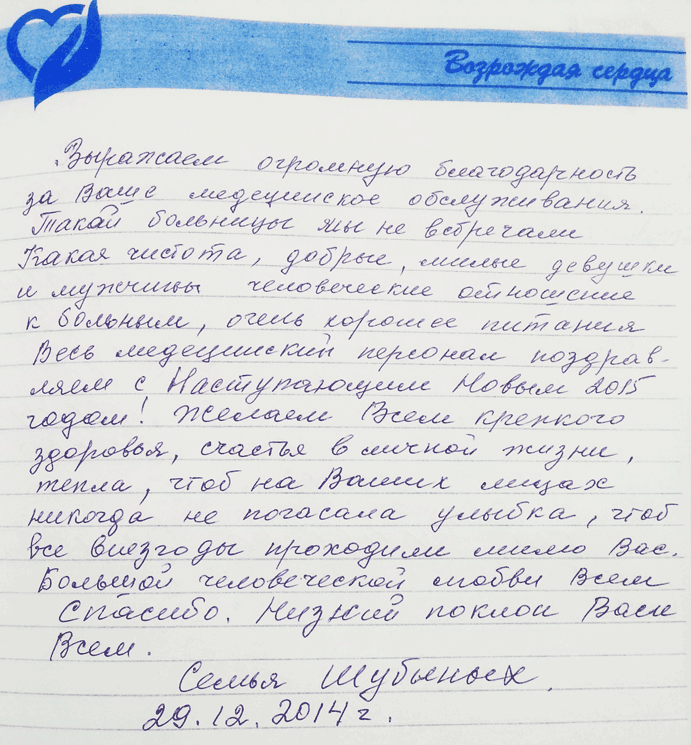 Возрождая сердца
Выражаем огромную благодарность
за Ваше медецинское обслуживания.
Такой больницы мы не встречали
Какая чистота, добрые, милые девушки
и мужчины человеческие отношение
к больным, очень хорошее питания
Весь медецинский персонал поздрав-
ляем с Наступающим Новым 2015
годом! Желаем Всем крепкого
здоровья, счастья в личной жизни,
тепла, чтоб на Ваших лицах
никогда не погасала улыбка, чтоб
все внезгоды проходили мимо Вас.
Большой человеческой любви Всем
Спасибо. Низкий поклон Вам
Всем.
Семья Шубыных.
29.12.2014 г.